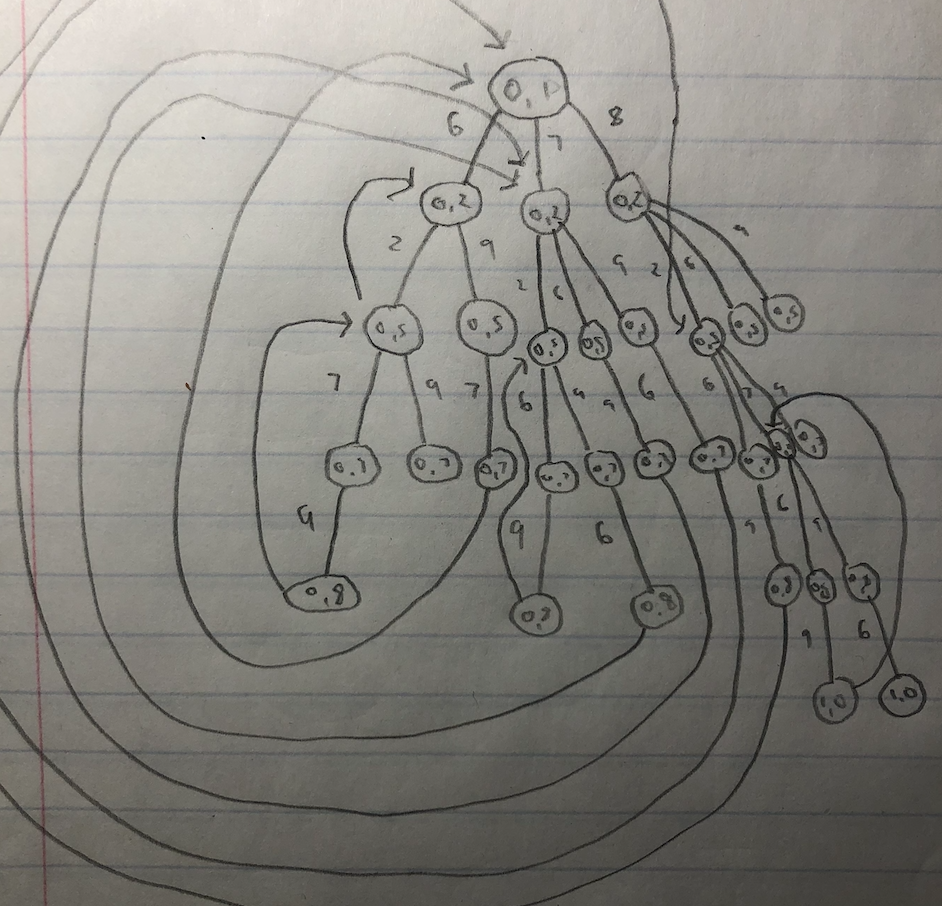 0,1
6 7 8
0,2 0,2 0,2
2 9 2 6 9 2 6 9
0,5 0,5 0,5 0,5 0,5 0,5
7 9 7 6 9 9 6 6 7 9
0,7 0,7 0,7 0,7 0,7 0,7 0,7 0,7
9 9 6 9 6 9
0,8 0,8 0,8 0,8
9 6
1,0 1,0